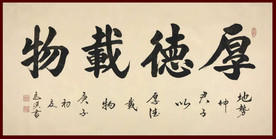 厚德載物
地勢
坤
君子
以
厚德
載
物
庚子
初
夏
書